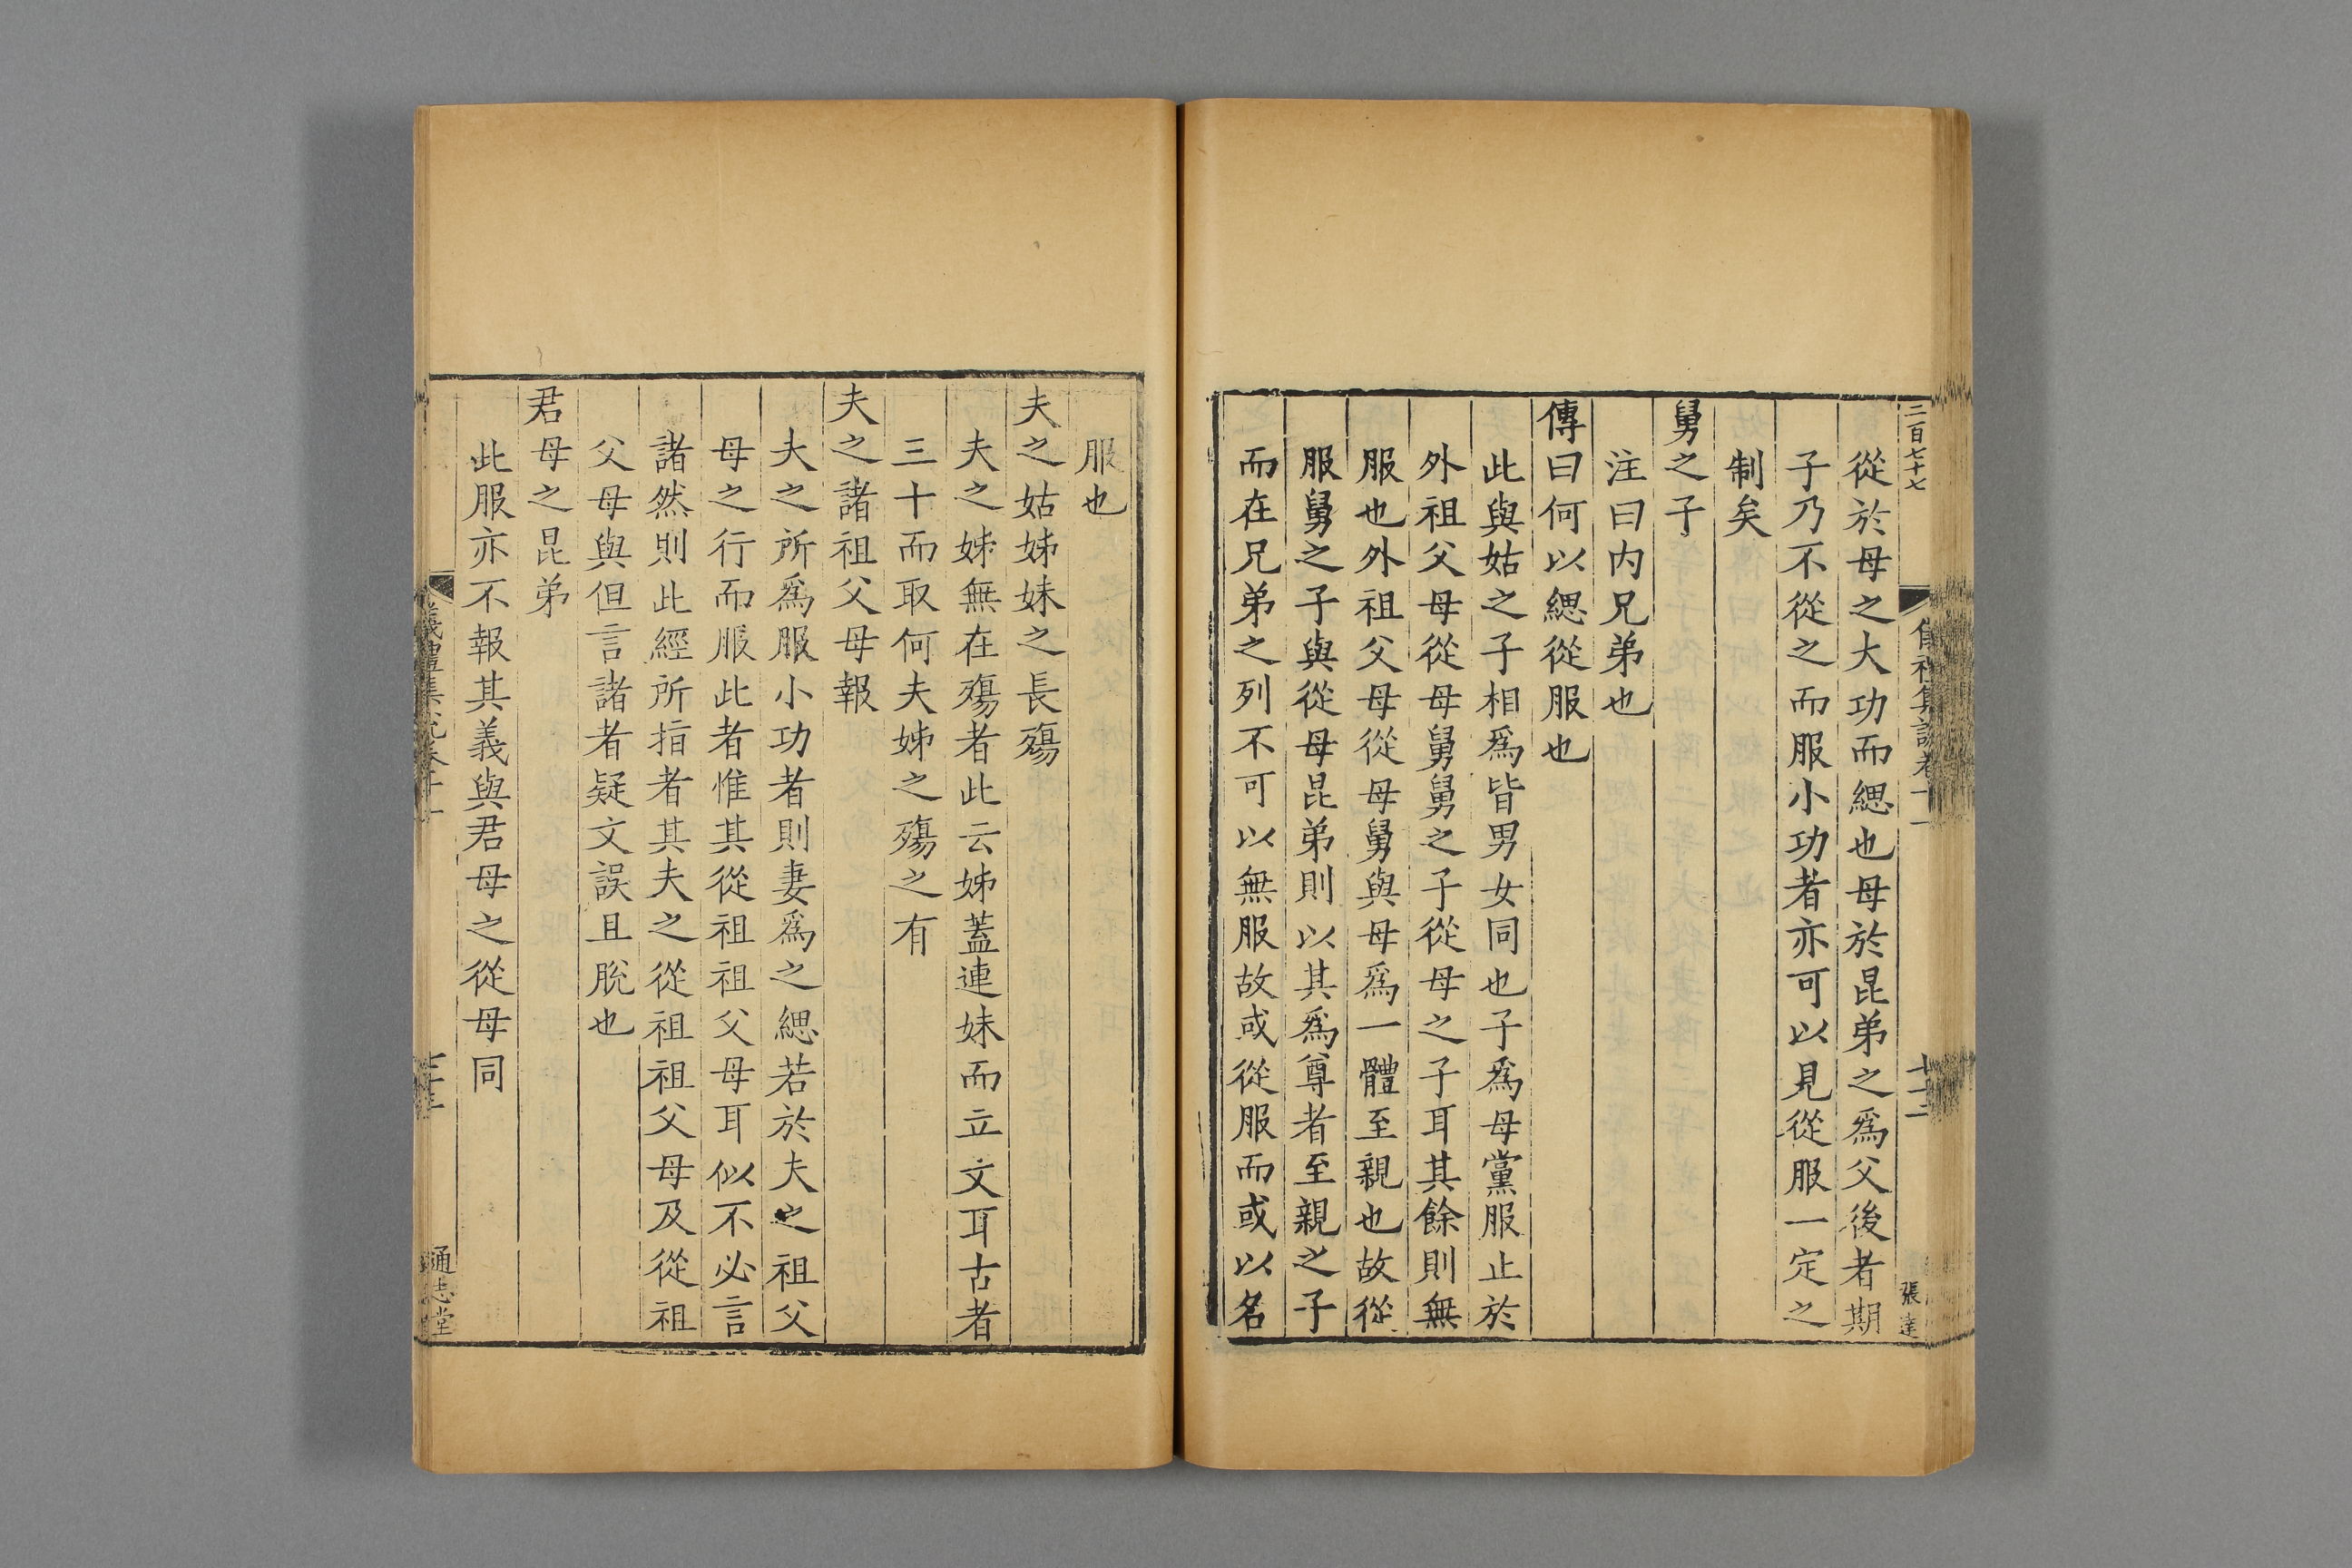 二百七十七
張達
從於母之大功而緦也母於昆弟之爲父後者期
子乃不從之而服小功者亦可以見從服一定之
制矣
舅之子
注曰内兄弟也
傳曰何以緦從服也
此與姑之子相爲皆男女同也子爲母黨服止於
外祖父母從母舅舅之子從母之子耳其餘則無
服也外祖父母從母舅與母爲一體至親也故從
服舅之子與從母昆弟則以其爲尊者至親之子
而在兄弟之列不可以無服故或從服而或以名
服也
夫之姑姊妹之長殤
夫之姊無在殤者此云姊蓋連妹而立文耳古者
三十而取何夫姊之殤之有
夫之諸祖父母報
夫之所爲服小功者則妻爲之緦若於夫之祖父
母之行而服此者惟其從祖祖父母耳似不必言
諸然則此經所指者其夫之從祖祖父母及從祖
父母與但言諸者疑文誤且脫也
君母之昆弟
此服亦不報其義與君母之從母同
通志堂